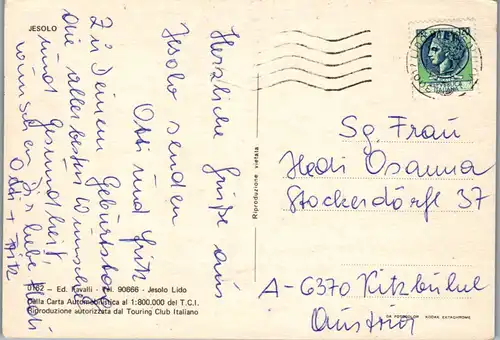 JESOLO
Herzliche Grüße aus
Jesolo senden
Otti und Fritz
Zu Deinem Geburtstag
Die allerbesten Wünsche
und Gesundheit,
wünschen Dir liebe Hedi
Otti + Fritz
Riproduzione vietata
Sg. Frau
Hedi Osanna
Stockerdörfl 37
A-6370 Kitzbühel
Austria
0182 - Ed. Ravalli - Tel. 90666 - Jesolo Lido
Dalla Carta Automobilistica al 1:800.000 del T.C.I.
Riproduzione autorizzata dal Touring Club Italiano
DA FOTOCOLOR KODAK EKTACHROME